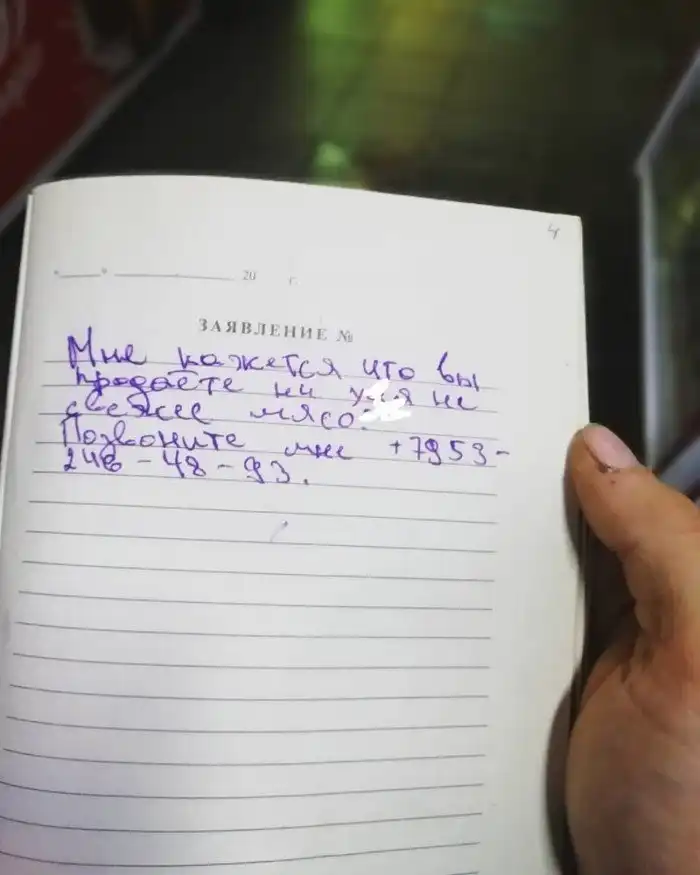 4
"___" ____________ 20 г.
ЗАЯВЛЕНИЕ №
Мне кажется что вы
продаёте ни не
свежее мясо.
Позвоните мне +7953-
246-48-93.